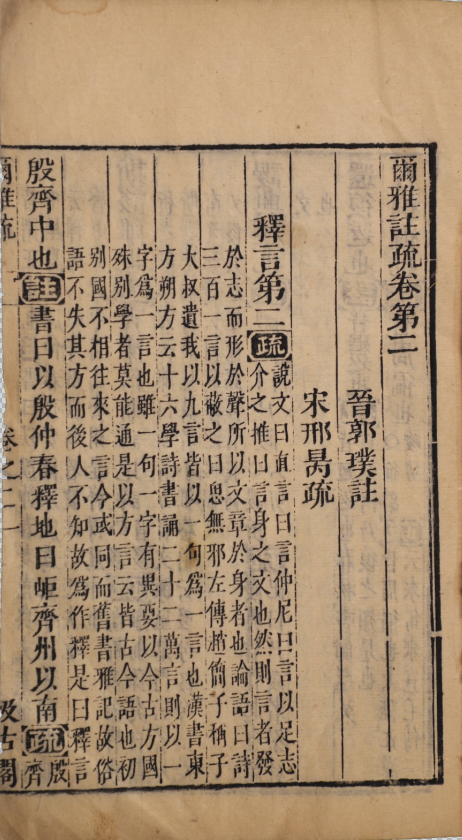 爾雅註疏卷第二
晉郭璞註
宋邢昺疏
釋言第二疏說文曰直言曰言仲尼曰言以足志
介之推曰言身之文也然則言者發
於志而形於聲所以文章於身者也論語曰詩
三百一言以蔽之曰思無邪左傳趙簡子稱子
大叔遺我以九言皆以一句爲一言也漢書東
方朔方云十六學詩書誦二十二萬言則以一
字爲一言也雖一句一字有異要以今古方國
殊别學者莫能通是以方言云皆古今語也初
别國不相往來之言今或同而舊書雅記故俗
語不失其方而後人不知故爲作釋是曰釋言
殷齊中也註書曰以殷仲春釋地曰岠齊州以南疏殷
齊
爾雅疏 卷之二 汲古閣